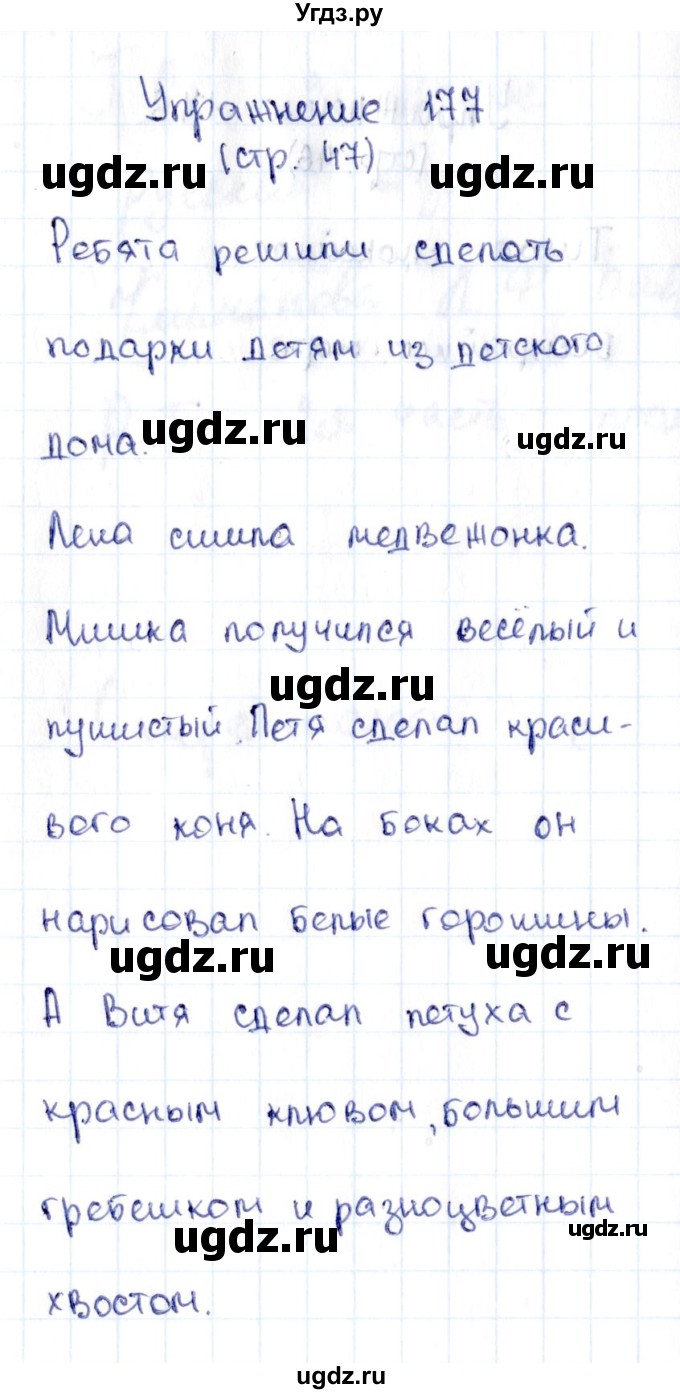 Угдз.ру
Упражнение 177
(стр. 47)
ugdz.ru ugdz.ru
Ребята решили сделать
подарки детям из детского
дома. ugdz.ru ugdz.ru
Лена сшила медвежонка.
Мишка получился весёлый и
ugdz.ru
пушистый. Петя сделал краси-
вого коня. На боках он
нарисовал белые горошины.
ugdz.ru ugdz.ru
А Витя сделал петуха с
красным клювом, большим
гребешком и разноцветным
ugdz.ru ugdz.ru
хвостом.
ugdz.ru